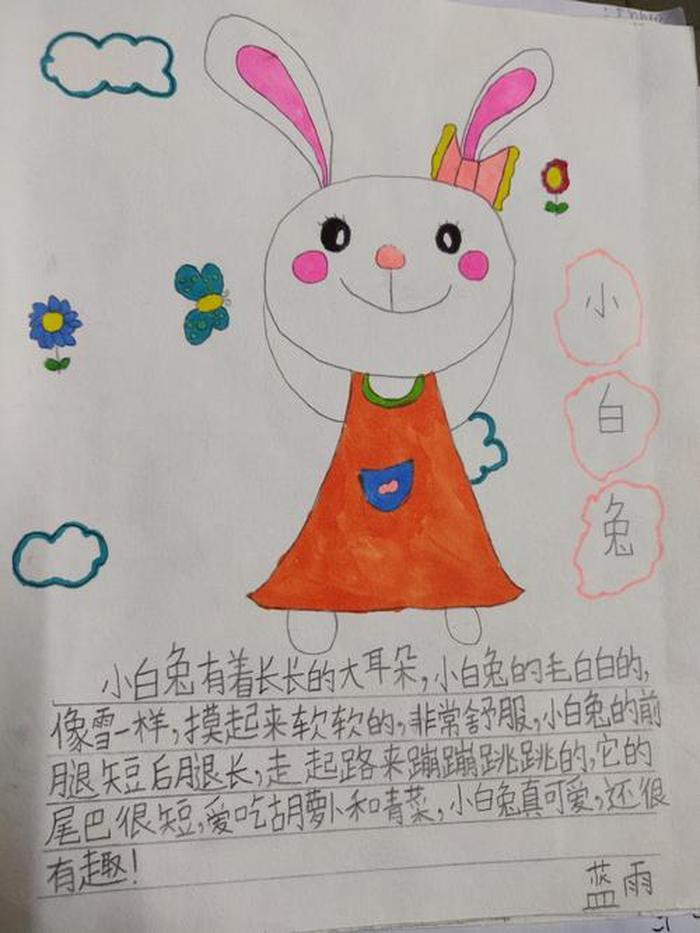 小
白
兔
小白兔有着长长的大耳朵,小白兔的毛白白的,
像雪一样,摸起来软软的,非常舒服,小白兔的前
腿短后腿长,走起路来蹦蹦跳跳的,它的
尾巴很短,爱吃胡萝卜和青菜,小白兔真可爱,还很
有趣!
蓝雨